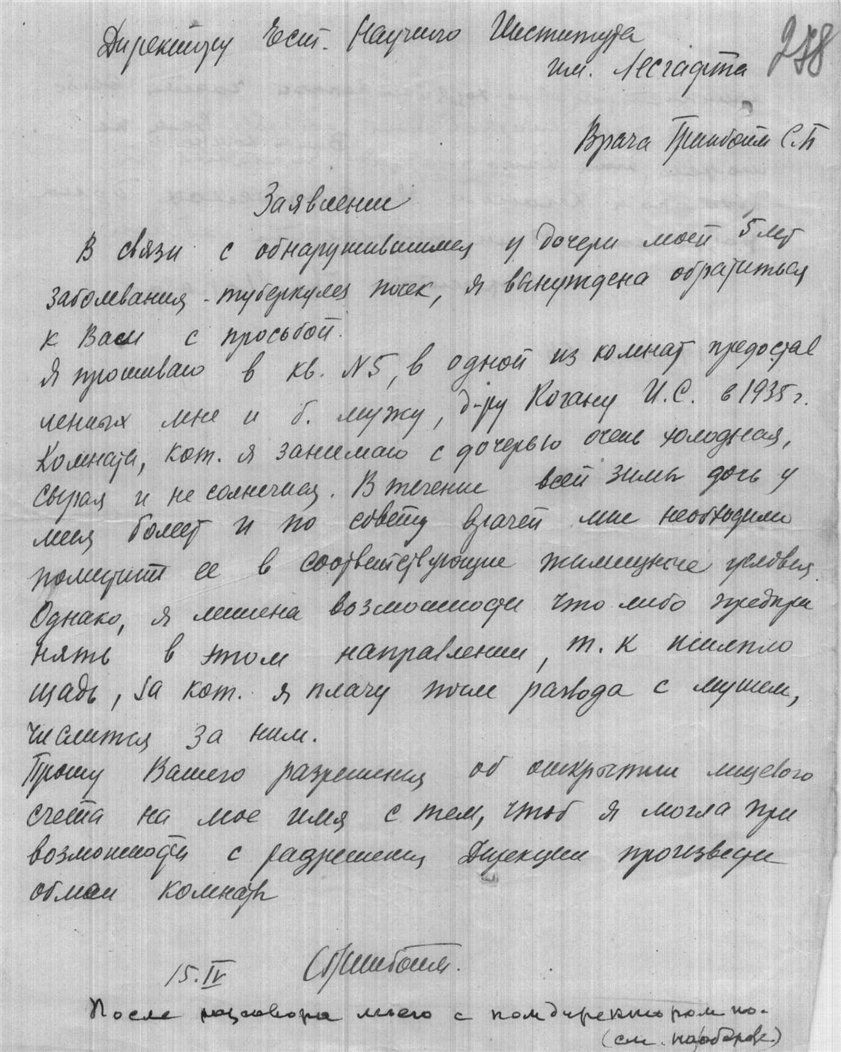 Директору Ест. Научного Института
им. Лесгафта
258
Врача Гринбойм С.П
Заявление
В связи с обнаружившимся у дочери моей 5 лет
заболевания - туберкулез почек, я вынуждена обратиться
к Вам с просьбой.
Я проживаю в кв. N5, в одной из комнат предостав
ленных мне и б. мужу, д-ру Когану И.С. в 1935 г.
Комната, кот. я занимаю с дочерью очень холодная,
сырая и не солнечная. В течение всей зимы дочь у
меня болеет и по совету врачей мне необходимо
поместить ее в соответствующие жилищные условия.
Однако, я лишена возможности что либо предпри
нять в этом направлении, т.к жилпло
щадь, за кот. я плачу после развода с мужем,
числится за ним.
Прошу Вашего разрешения об открытии лицевого
счета на мое имя с тем, чтоб я могла при
возможности с разрешения Дирекции произвести
обмен комнаты
15.IV
СГринбойм.
После разговора моего с помдиректором по-
(см. на обороте)